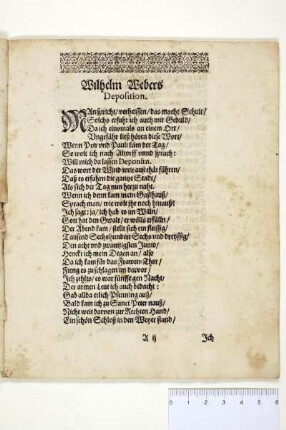 Wilhelm Webers
Deposition.
MAn spricht / verheissen / das macht Schult /
Solchs erfuhr ich auch mit Gedult /
Da ich einsmals an einem Ort /
Ungefähr ließ hören diese Wort /
Wenn Petr und Pauli käm der Tag /
So wolt ich nach Altorff unnd sprach:
Will mich da lassen Deponirn.
Das wort der Wind weit auß thät führen /
Daß es erfuhren die gantze Stadt /
Als sich der Tag nun herzu naht.
Wenn ich denn kam inein Gasthauß /
Sprach man / wie wolt ihr noch hinauß?
Ich sagt: ja / ich hab es an Willn /
Gott hat den Gwalt / er wöll's erfülln /
Der Abend kam / stellt sich ein fleissig /
Tausend Sechshundert Sechs und dreyssig /
Den acht und zwantzigsten Junii /
Henckt ich mein Degen an / also
Da ich kam für das Frawen-Thor /
Fieng es zu schlagen an davor /
Ich zehlts / es war fünffe gen Nacht /
Der armen Leut ich auch bedacht:
Gab allda etlich Pfenning auß /
Bald kam ich zu Sanct Peter nauß /
Nicht weit darvon zur Rechten Hand /
Ein schön Schloß in den Weyer stand /
A ij
Ich
0 1 2 3 4 5 6